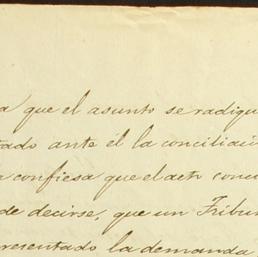 a que el asunto se radiqu
tado ante él la conciliació
a confiesa que el acto conc
de decirse, que un Tribu
presentado la demanda